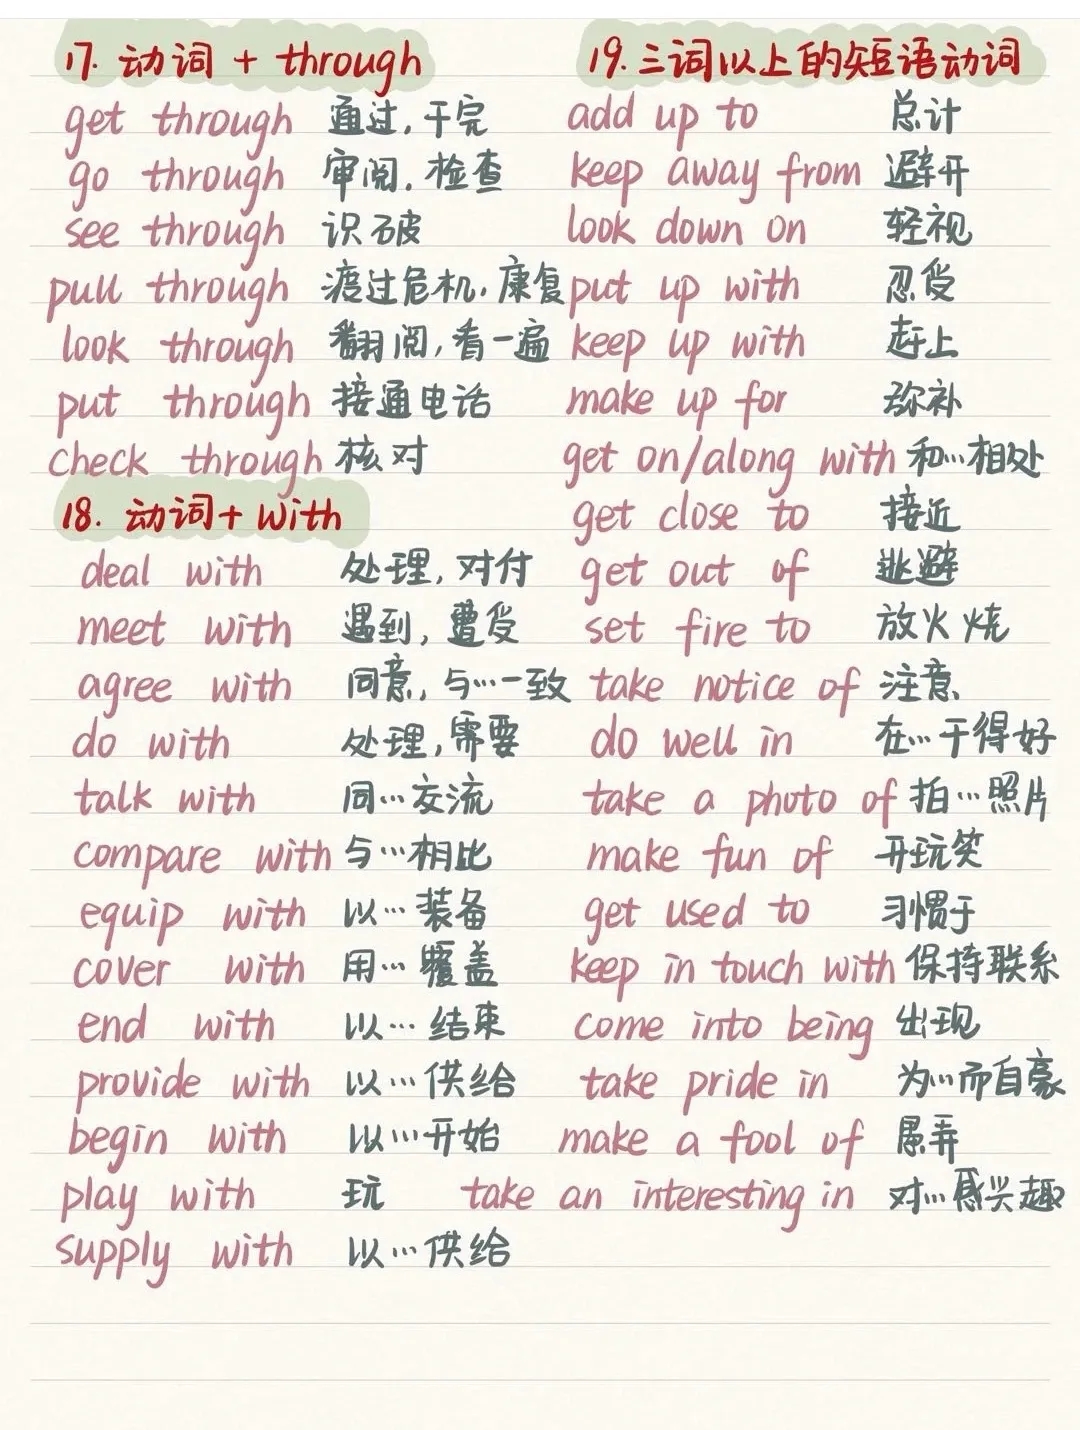 17. 动词 + through
get through 通过, 干完
go through 审阅. 检查
see through 识破
pull through 渡过危机, 康复
look through 翻阅, 看一遍
put through 接通电话
check through 核对
18. 动词 + with
deal with 处理, 对付
meet with 遇到, 遭受
agree with 同意, 与…一致
do with 处理, 需要
talk with 同…交流
compare with 与…相比
equip with 以…装备
cover with 用…覆盖
end with 以…结束
provide with 以…供给
begin with 以…开始
play with 玩
supply with 以…供给
19. 三词以上的短语动词
add up to 总计
keep away from 避开
look down on 轻视
put up with 忍受
keep up with 赶上
make up for 弥补
get on/along with 和…相处
get close to 接近
get out of 逃避
set fire to 放火烧
take notice of 注意
do well in 在…干得好
take a photo of 拍…照片
make fun of 开玩笑
get used to 习惯于
keep in touch with 保持联系
come into being 出现
take pride in 为…而自豪
make a fool of 愚弄
take an interesting in 对…感兴趣